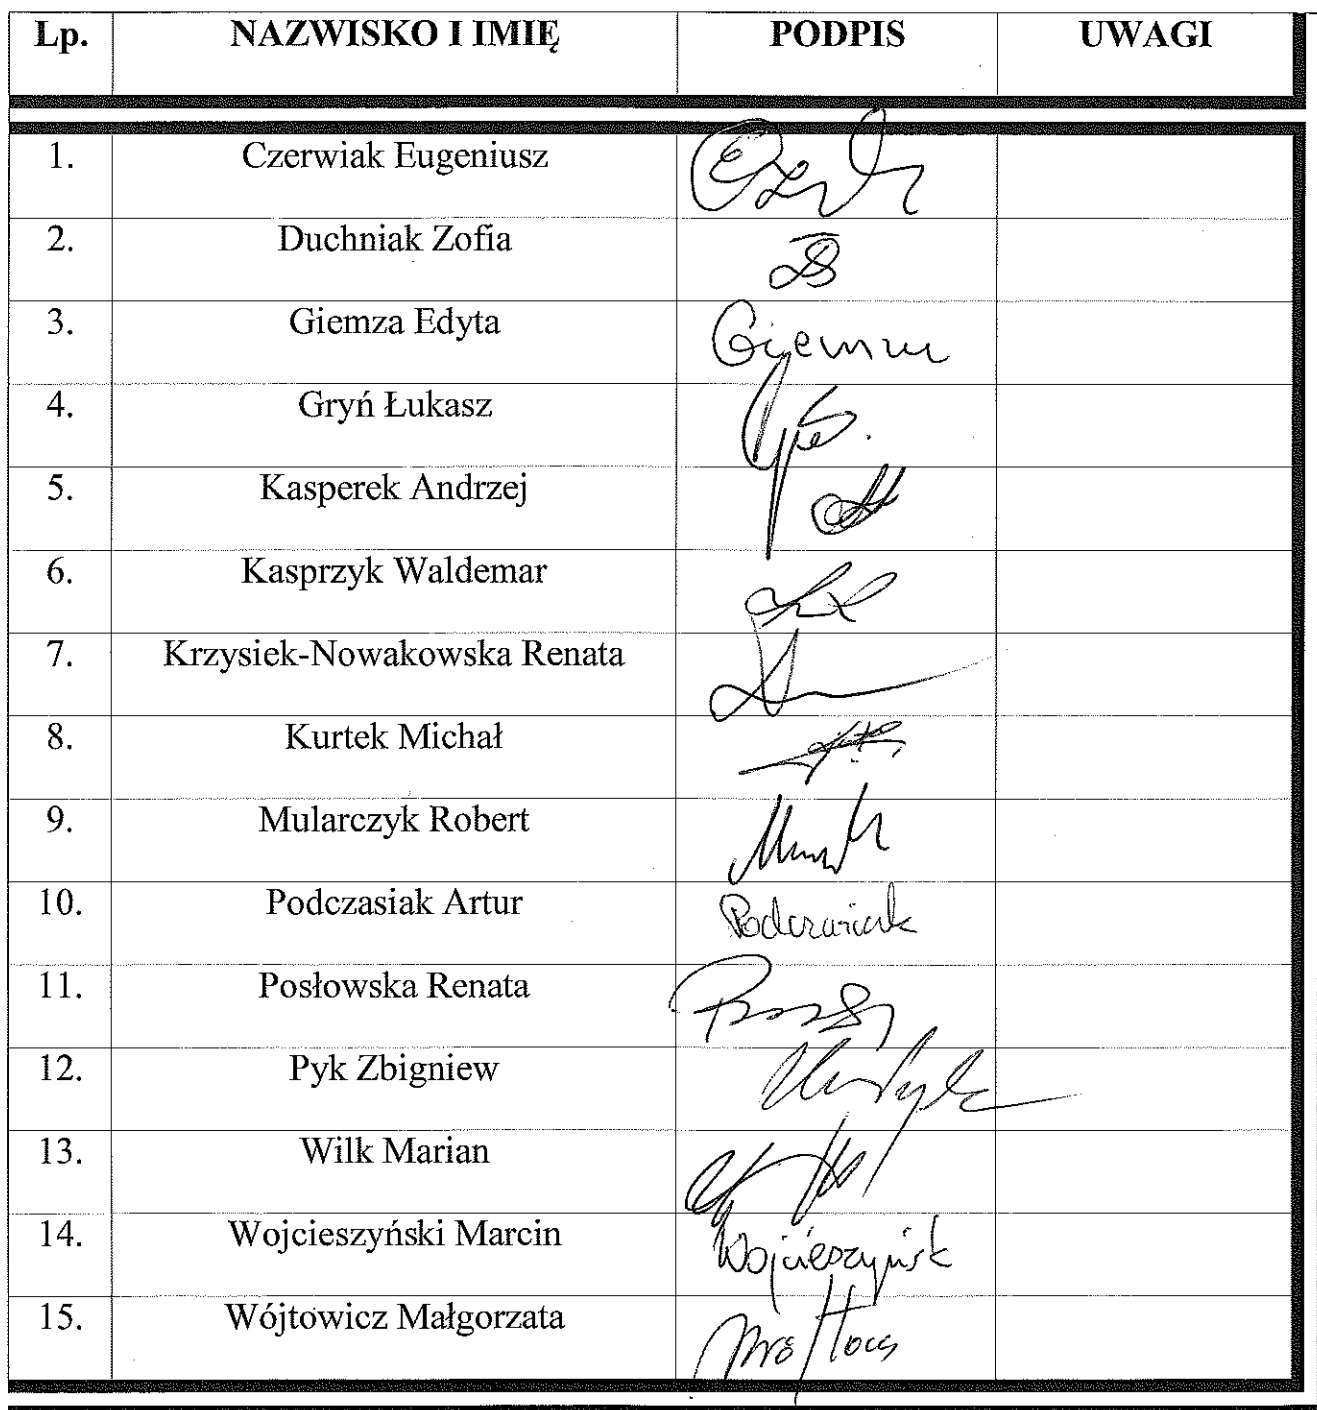 Lp. NAZWISKO I IMIĘ PODPIS UWAGI
1. Czerwiak Eugeniusz
2. Duchniak Zofia
3. Giemza Edyta Giemza
4. Gryń Łukasz
5. Kasperek Andrzej
6. Kasprzyk Waldemar
7. Krzysiek-Nowakowska Renata
8. Kurtek Michał
9. Mularczyk Robert
10. Podczasiak Artur Podczasiak
11. Posłowska Renata
12. Pyk Zbigniew
13. Wilk Marian
14. Wojcieszyński Marcin Wojcieszyńsk
15. Wójtowicz Małgorzata